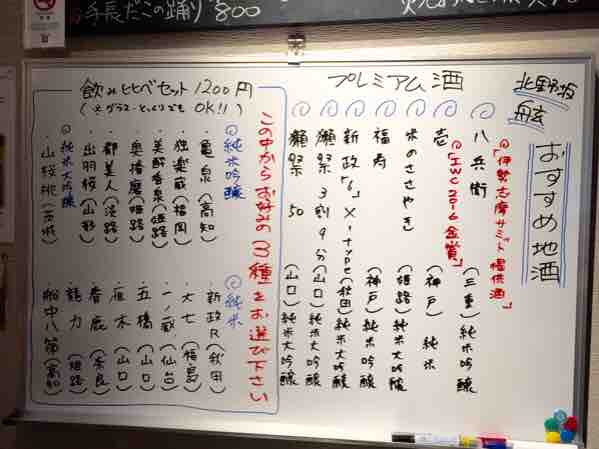 手長だこの踊り 800
北野坂
舷
おすすめ地酒
プレミアム酒
「伊勢志摩サミット提供酒」
八兵衛 (三重) 純米大吟醸
「IWC 2016 金賞」
壱 (神戸) 純米
米のささやき (姫路) 純米大吟醸
福寿 (神戸) 純米吟醸
新政「6」X-type (秋田) 純米大吟醸
獺祭 3割9分 (山口) 純米大吟醸
獺祭 50 (山口) 純米大吟醸
飲み比べセット 1200円
(※グラス・とっくりでも OK!!)
この中からお好みの3種をお選び下さい
◎純米吟醸
・亀泉 (高知)
・独楽蔵 (福岡)
・美酔香泉 (姫路)
・奥播磨 (姫路)
・都美人 (淡路)
・出羽桜 (山形)
◎純米大吟醸
・山桜桃 (茨城)
◎純米
・新政R (秋田)
・大七 (福島)
・一ノ蔵 (仙台)
・五橋 (山口)
・雁木 (山口)
・春鹿 (奈良)
・龍力 (姫路)
・船中八策 (高知)